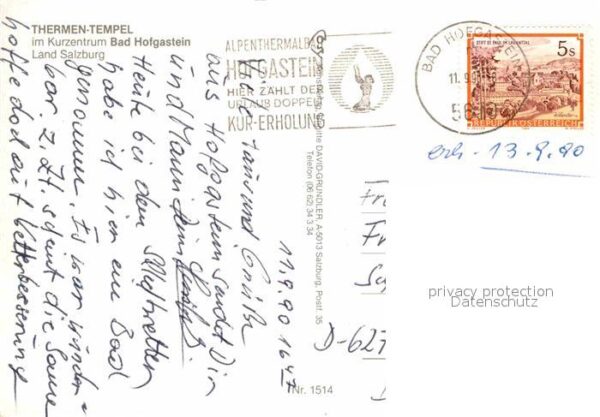 THERMEN-TEMPEL
im Kurzentrum Bad Hofgastein
Land Salzburg
ALPENTHERMALBAD
HOFGASTEIN
HIER ZÄHLT DER
URLAUB DOPPELT
KUR-ERHOLUNG
BAD HOFGASTEIN
11.9.90
STIFT ST. PAUL IM LAVANTTAL
5s
REPUBLIK ÖSTERREICH
erh. 13.9.90
11.9.90 16 47
tausend Grüße
aus Hofgastein sendet Dir
und Mann Dein
Heute bei dem
habe ich hier ein Bad
genommen. Es war wunder=
bar. Z. Zt. scheint die Sonne
hoffe doch auf Wetterbesserung
DAVID-GRÜNDLER, A-5013 Salzburg, Postf. 35
Telefon (06 62) 34 3 34
Nr. 1514
Fr
D-627
privacy protection
Datenschutz